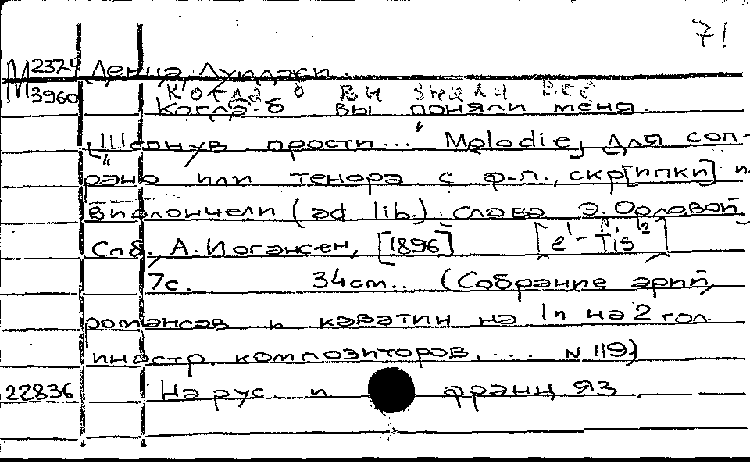 71
М 2374 Ленца, Луиджи.
М 3960 Когда б вы знали все
Когда-б вы поняли меня.
„Шепнув прости..." Melodie, для соп-
рано или тенора с ф-п., скр[ипки] и
виолончели (ad lib.) слова Э. Орловой.
Спб. А. Иогансен, [1896] [e¹ - fis²]
7с. 34cm.. (Собрание арий,
романсов и каватин на 1 и на 2 гол.
иностр. композиторов, ... N 119)
22836 На рус. и франц яз